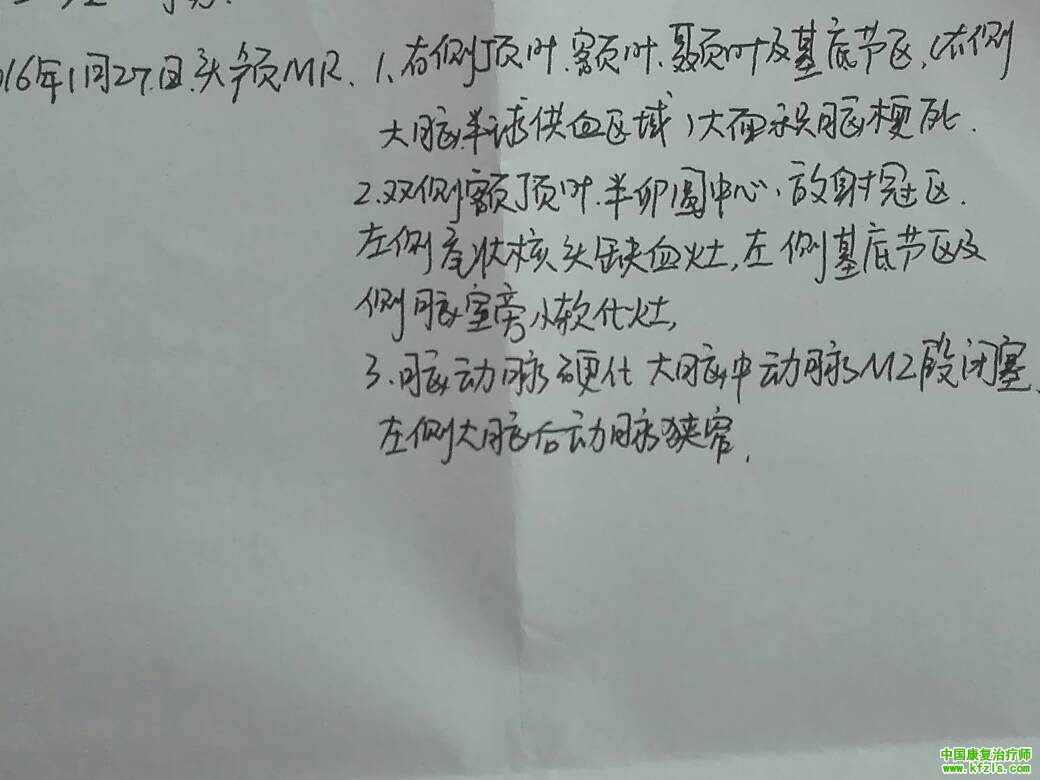 016年1月27日头颅MR.1、右侧顶叶.额叶、颞叶及基底节区,(右侧
大脑半球供血区域)大面积脑梗死.
2.双侧额顶叶.半卵圆中心、放射冠区.
左侧壳状核头缺血灶,左侧基底节区及
侧脑室旁小软化灶,
3.脑动脉硬化 大脑中动脉M2段闭塞、
左侧大脑后动脉狭窄.
中国康复治疗师
www.kfzls.com